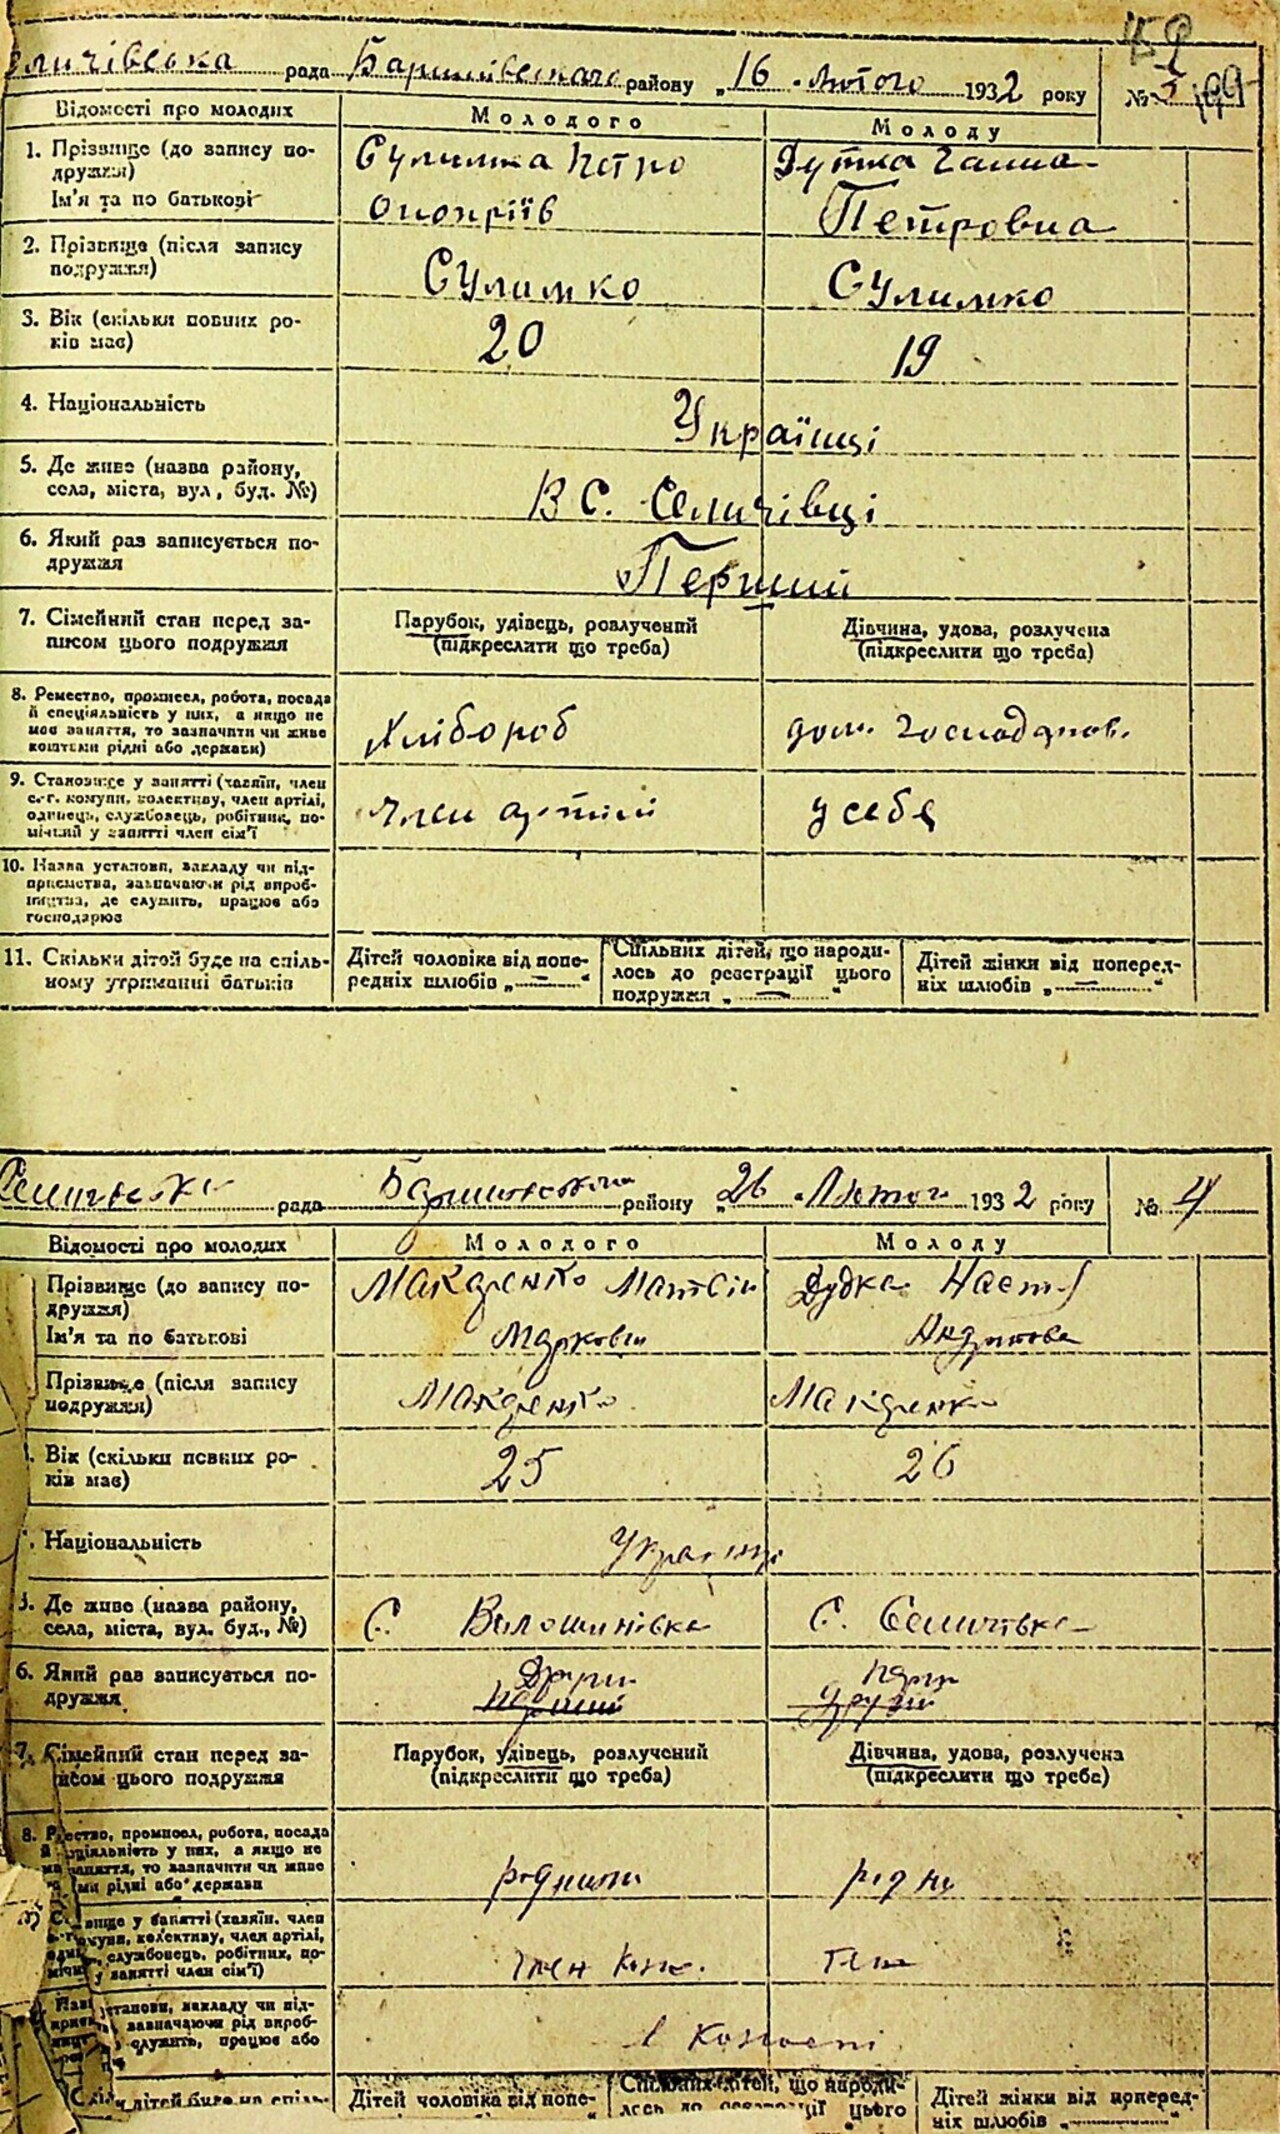 рада Баришівського району „16 " лютого 1932 року № 3
Відомості про молодих
Молодого
Молоду
1. Прізвище (до запису по-
дружжя)
Ім'я та по батькові
Сулимка Петро
Онопріїв
Дутка Ганна
Петровна
2. Прізвище (після запису
подружжя)
Сулимко
Сулимко
3. Вік (скільки повних ро-
ків має)
20
19
4. Національність
Українці
5. Де живе (назва району,
села, міста, вул, буд. №)
В с. Селичівці
6. Який раз записується по-
дружжя
Перший
7. Сімейний стан перед за-
писом цього подружжя
Парубок, удівець, розлучений
(підкреслити що треба)
Дівчина, удова, розлучена
(підкреслити що треба)
8. Ремество, промисел, робота, посада
й спеціяльність у них, а якщо не
має заняття, то зазначити чи живе
коштами рідні або держави)
Хлібороб
дом. господапов.
9. Становище у занятті (хазяїн, член
с.-г. комуни, колективу, член артілі,
одинець, службовець, робітник, по-
мічний у занятті член сім'ї
Член артілі
у себе
10. Назва установи, закладу чи під-
приємства, зазначаючи рід вироб-
ництва, де служить, працює або
господарює
11. Скільки дітей буде на спіль-
ному утриманні батьків
Дітей чоловіка від попе-
редніх шлюбів „ — "
Спільних дітей, що народи-
лось до реєстрації цього
подружжя „ — "
Дітей жінки від поперед-
ніх шлюбів „ — "
рада району „26 " Лютого 1932 року № 4
Відомості про молодих
Молодого
Молоду
Прізвище (до запису по-
дружжя)
Ім'я та по батькові
Макаренко Матвій
Маркович
Дудка Наст
Прізвище (після запису
подружжя)
Макаренко
Макаренко
Вік (скільки повних ро-
ків має)
25
26
Національність
Українці
Де живе (назва району,
села, міста, вул. буд., №)
С. Волошинівка
С. Селичівка
6. Який раз записується по-
дружжя
Други
перший
перш
другий
7. Сімейний стан перед за-
писом цього подружжя
Парубок, удівець, розлучений
(підкреслити що треба)
Дівчина, удова, розлучена
(підкреслити що треба)
8. промисел, робота, посада
у них, а якщо не
заняття, то зазначити чи живе
рідні або держави
у занятті (хазяїн, член
колективу, член артілі,
службовець, робітник, по-
у занятті член сім'ї)
член
установи, закладу чи під-
зазначаючи рід вироб-
служить, працює або
дітей буде на спіль-
Дітей чоловіка від попе-
Спільних дітей, що народи-
лось до цього
Дітей жінки від поперед-
ніх шлюбів „ "